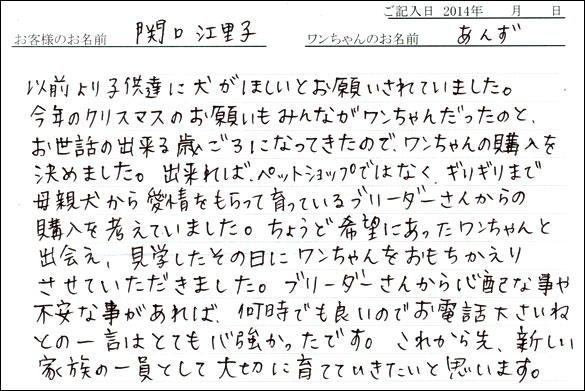 ご記入日 2014年　月　日
お客様のお名前 関口 江里子　ワンちゃんのお名前 あんず
以前より子供達に犬がほしいとお願いされていました。
今年のクリスマスのお願いもみんながワンちゃんだったのと、
お世話の出来る歳ごろになってきたので、ワンちゃんの購入を
決めました。出来れば、ペットショップではなく、ギリギリまで
母親犬から愛情をもらって育っているブリーダーさんからの
購入を考えていました。ちょうど希望にあったワンちゃんと
出会え、見学したその日にワンちゃんをおもちかえり
させていただきました。ブリーダーさんから心配な事や
不安な事があれば、何時でも良いのでお電話下さいね
との一言はとても心強かったです。これから先、新しい
家族の一員として大切に育てていきたいと思います。